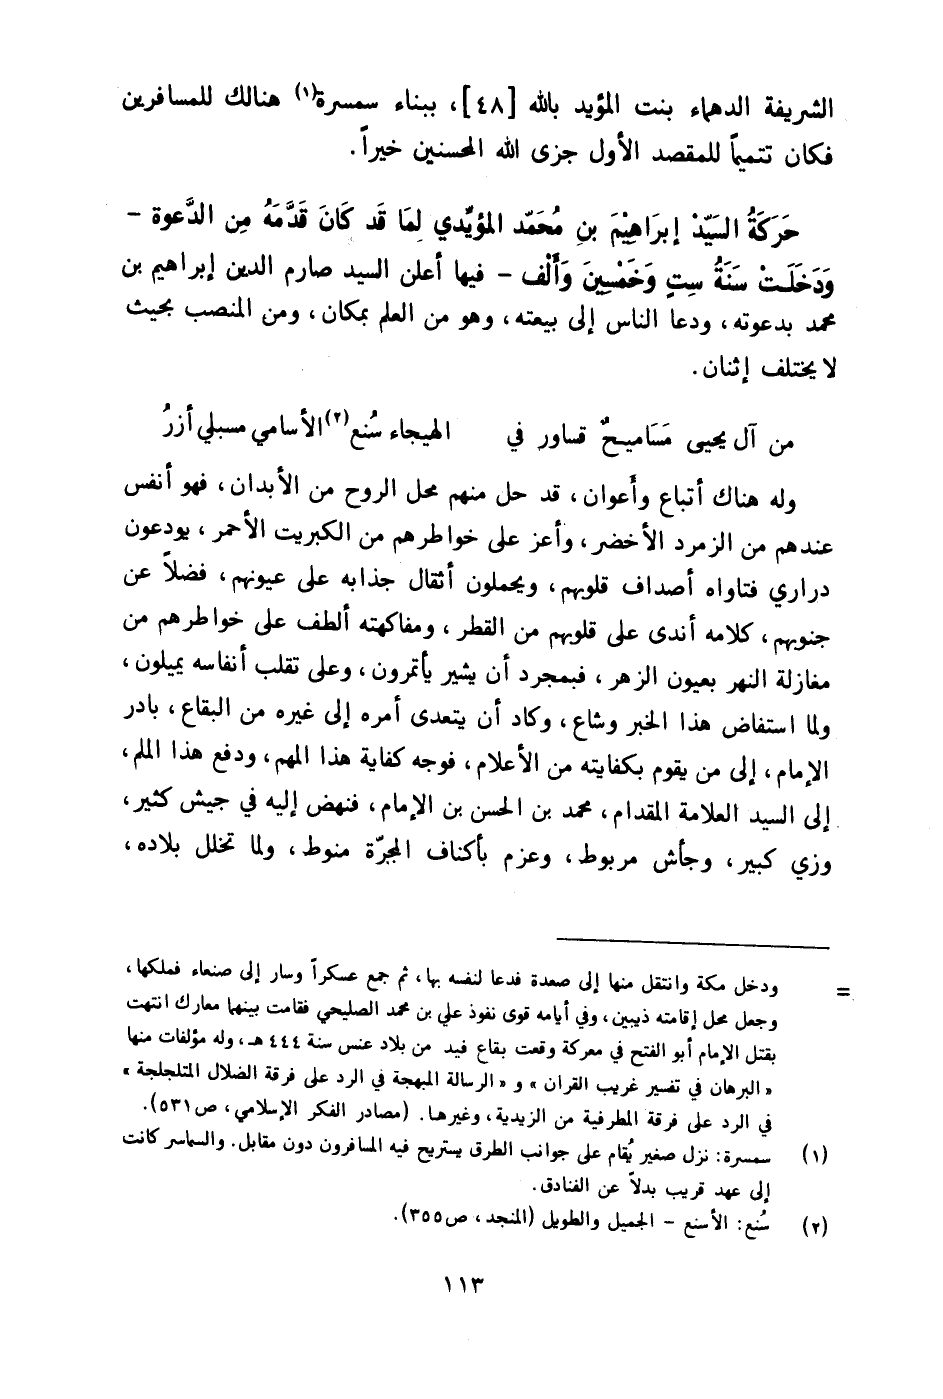 الشريفة الدهماء بنت المؤيد بالله [٤٨]، ببناء سمسرة(١) هنالك للمسافرين
فكان تتميماً للمقصد الأول جزى الله المحسنين خيراً.
حَرَكَةُ السَيّدْ إبرَاهِيْمَ بنِ مُحَمّد المؤيّدي لِمَا قَد كَانَ قَدَّمَهُ مِن الدَّعوة -
وَدَخَلَتْ سَنَةُ سِتٍ وَخَمْسِينَ وَأَلْف - فيها أعلن السيد صارم الدين إبراهيم بن
محمد بدعوته، ودعا الناس إلى بيعته، وهو من العلم بمكان، ومن المنصب بحيث
لا يختلف إثنان.
من آل يحيى مَسَاميحٌ قساور في الهيجاء سُنع(٢) الأسامي مسبلي أزرُ
وله هناك أتباع وأعوان، قد حل منهم محل الروح من الأبدان، فهو أنفس
عندهم من الزمرد الأخضر، وأعز على خواطرهم من الكبريت الأحمر، يودعون
دراري فتاواه أصداف قلوبهم، ويحملون أثقال جذابه على عيونهم، فضلاً عن
جنوبهم، كلامه أندى على قلوبهم من القطر، ومفاكهته ألطف على خواطرهم من
مغازلة النهر بعيون الزهر، فبمجرد أن يشير يأتمرون، وعلى تقلب أنفاسه يميلون،
ولما استفاض هذا الخبر وشاع، وكاد أن يتعدى أمره إلى غيره من البقاع، بادر
الإمام، إلى من يقوم بكفايته من الأعلام، فوجه كفاية هذا المهم، ودفع هذا الملم،
إلى السيد العلامة المقدام، محمد بن الحسن بن الإمام، فنهض إليه في جيش كثير،
وزي كبير، وجأش مربوط، وعزم بأكناف المجرّة منوط، ولما تخلل بلاده،
= ودخل مكة وانتقل منها إلى صعدة فدعا لنفسه بها، ثم جمع عسكراً وسار إلى صنعاء فملكها،
وجعل محل إقامته ذيبين، وفي أيامه قوى نفوذ علي بن محمد الصليحي فقامت بينهما معارك انتهت
بقتل الإمام أبو الفتح في معركة وقعت بقاع فيد من بلاد عنس سنة ٤٤٤ هـ، وله مؤلفات منها
« البرهان في تفسير غريب القران » و « الرسالة المبهجة في الرد على فرقة الضلال المتلجلجة »
في الرد على فرقة المطرفية من الزيدية، وغيرها. (مصادر الفكر الإسلامي، ص٥٣١).
(١) سمسرة: نزل صغير يُقام على جوانب الطرق يستريح فيه المسافرون دون مقابل. والسماسر كانت
إلى عهد قريب بدلاً عن الفنادق.
(٢) سُنع: الأسنع - الجميل والطويل (المنجد، ص٣٥٥).
١١٣